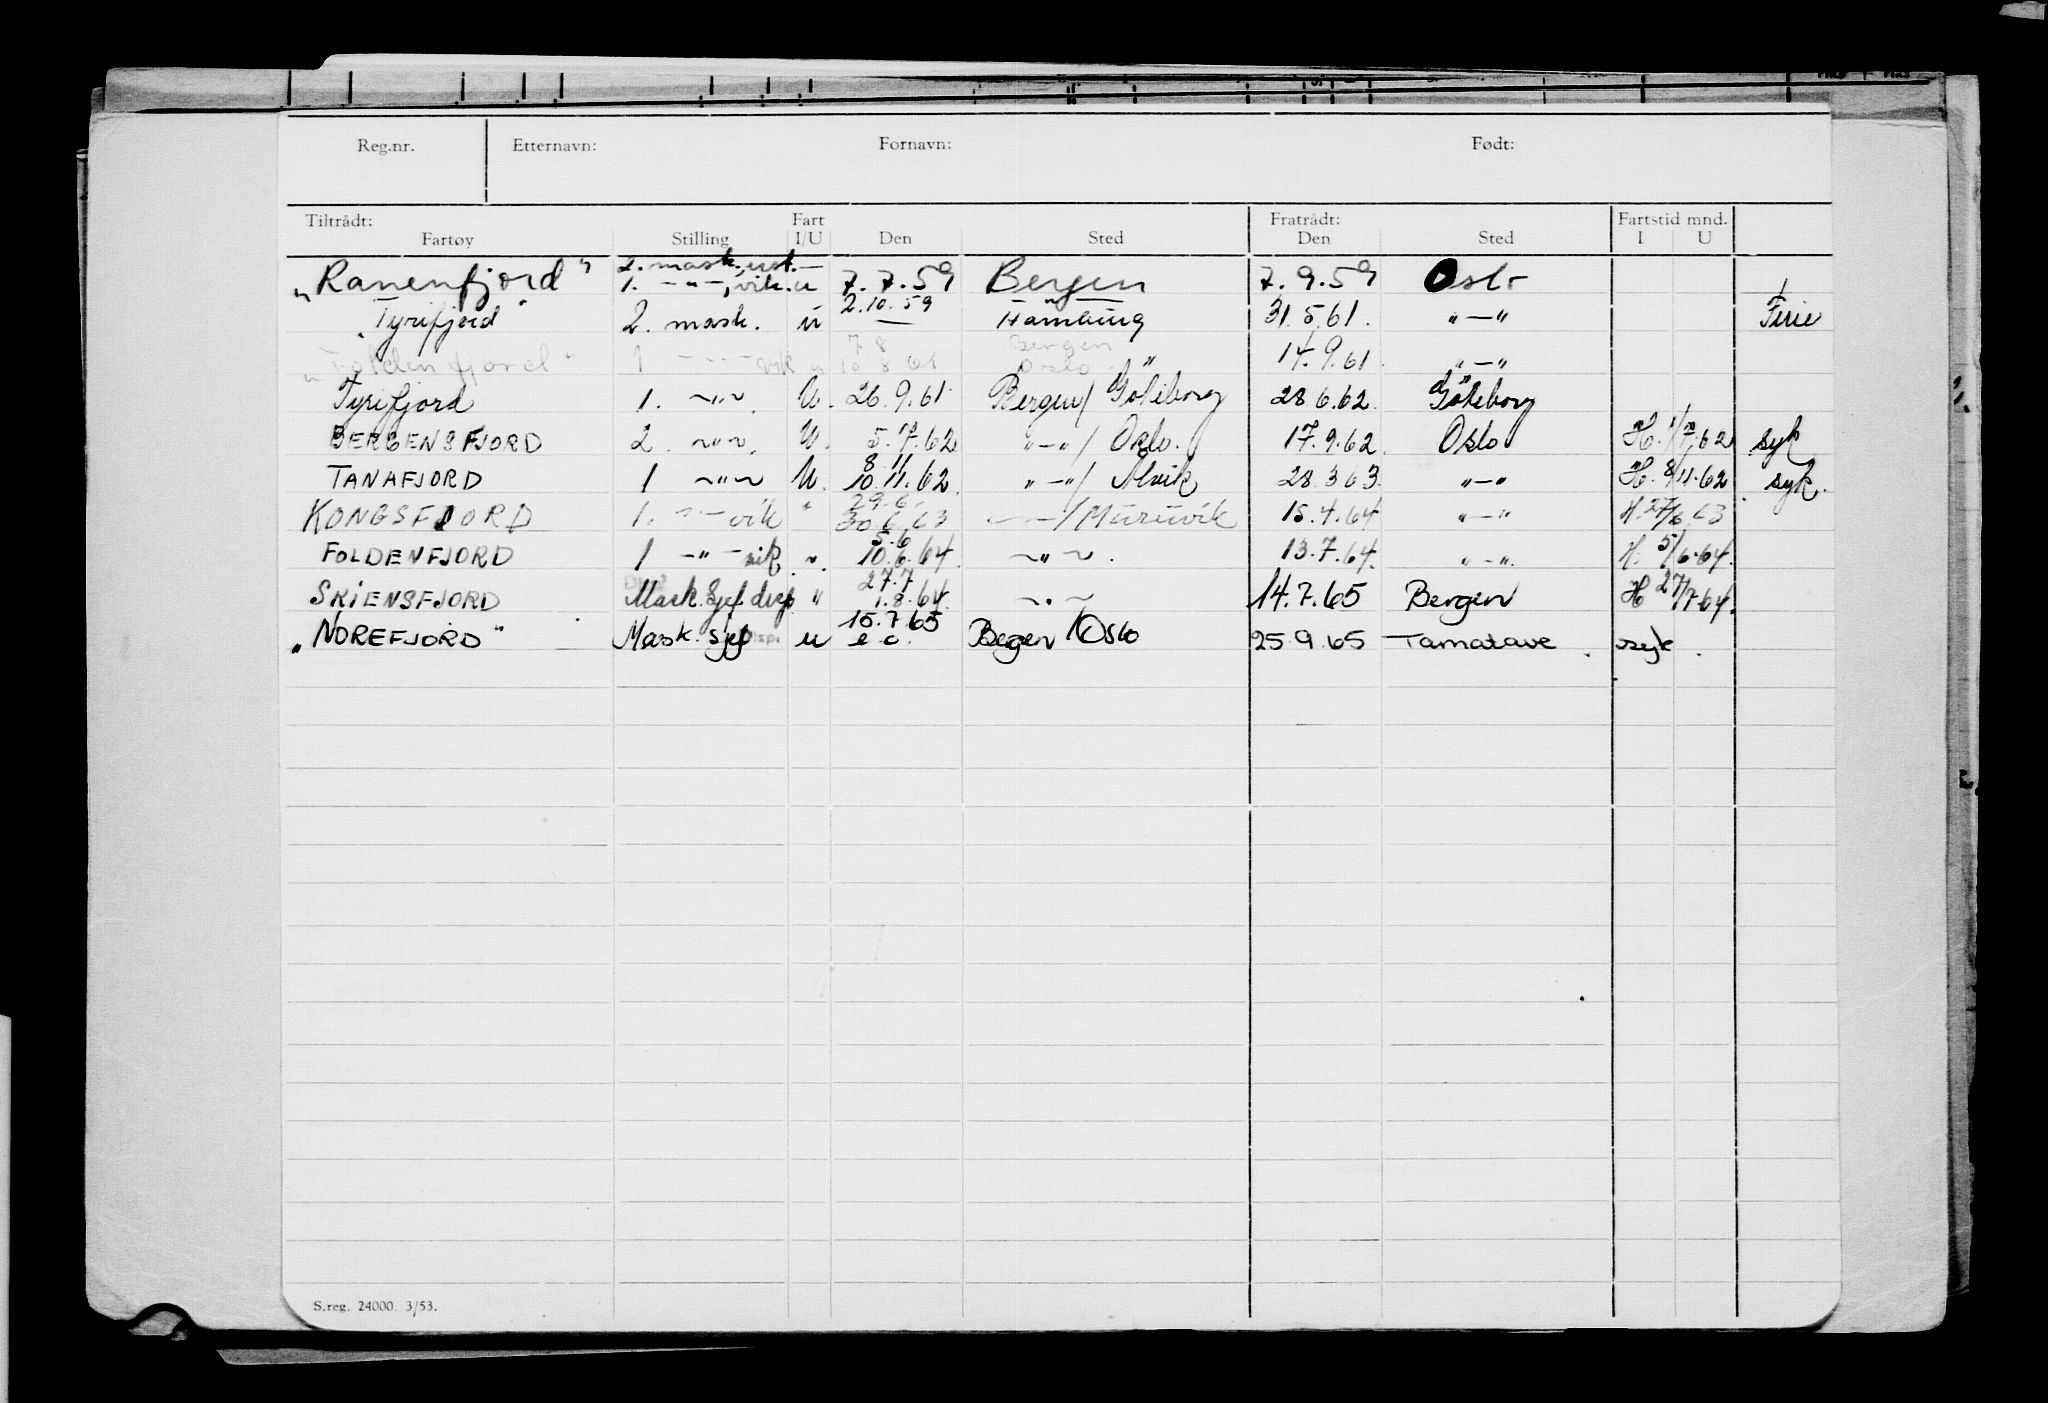 Reg.nr. Etternavn: Fornavn: Født:
Tiltrådt: Fart Fratrådt: Fartstid mnd.
Fartøy Stilling I/U Den Sted Den Sted I U
2. mask.,
"Ranenfjord" 1. -"-, vik. u 7.7.59 Bergen 7.9.59 Oslo
2.10.59
"Tyrifjord" 2. mask. u — Hamburg 31.5.61. "-" Ferie
7 8 Bergen
"Foldenfjord" 1 -"- vik u 10 8 61 Oslo 14.9.61 "-"
Tyrifjord 1. ~"~ U. 26.9.61 Bergen/Göteborg 28.6.62. Göteborg
BERGENSFJORD 2 ~"~. U. 5. 7.62 "-"/ Oslo. 17.9.62. Oslo H. 7.62 syk
8.11
TANAFJORD 1 ~"~ U. 10.11.62. "-"/ Ålvik 28.3 63. "-" H. 8/11.62 syk.
29.6.
KONGSFJORD 1. -"- vik " 30.6.63 -"-/ Muruvik 15.4.64 "-" H. 27/6 63
5.6
FOLDENFJORD 1 -"- vik. ". 10.6.64. ~"~. 13.7.64. "-". H. 5/6.64.
27.7
SKIENSFJORD Mask. Sjef disp " 1.8.64. ~"~ 14.7.65 Bergen H 27/7.64.
15.7.65
"NOREFJORD" Mask. sjef Disp. u e o. Begen/Oslo 25.9.65 Tamatave. syk.
S.reg. 24000. 3/53.